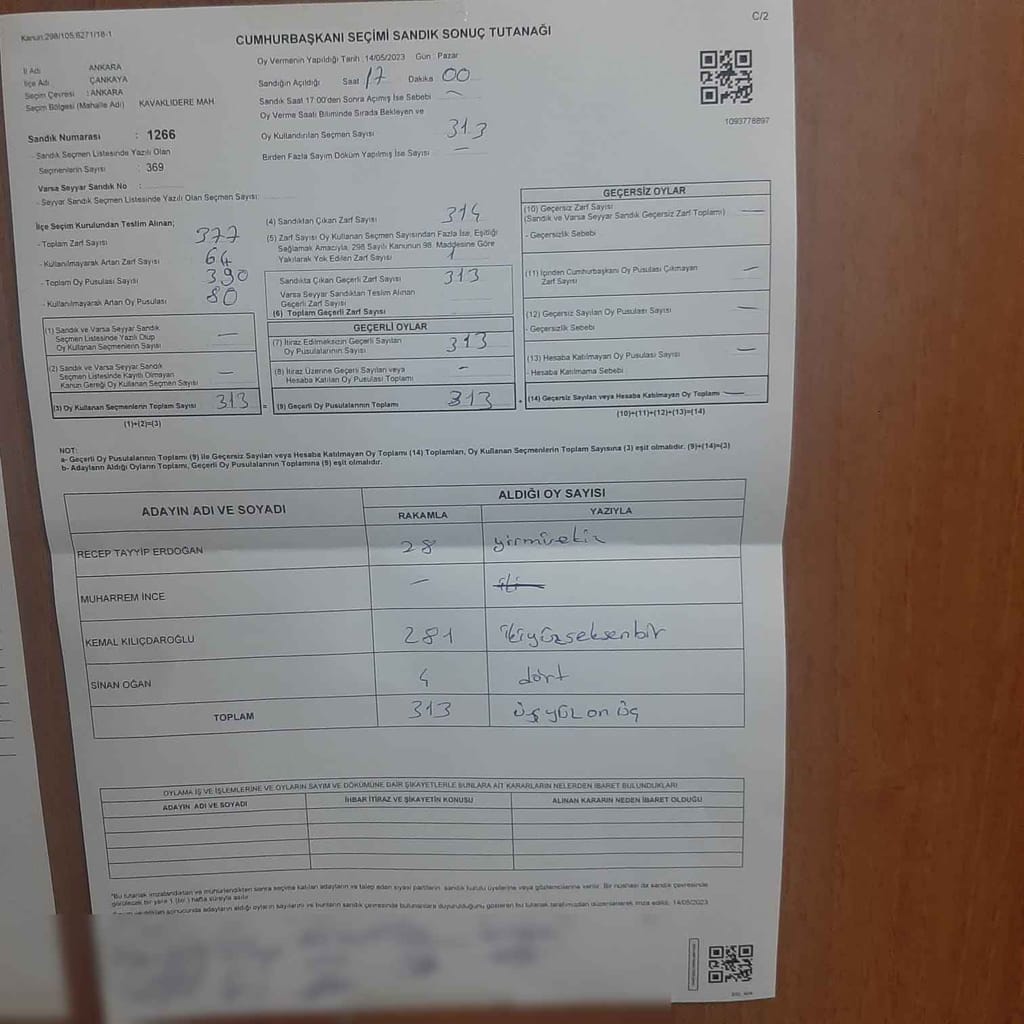 Kanun:298/105;6271/18-1
C/2
CUMHURBAŞKANI SEÇİMİ SANDIK SONUÇ TUTANAĞI
İl Adı ANKARA
İlçe Adı ÇANKAYA
Seçim Çevresi : ANKARA
Seçim Bölgesi (Mahalle Adı) KAVAKLIDERE MAH
Sandık Numarası : 1266
- Sandık Seçmen Listesinde Yazılı Olan
Seçmenlerin Sayısı : 369
Varsa Seyyar Sandık No :
- Seyyar Sandık Seçmen Listesinde Yazılı Olan Seçmen Sayısı:
Oy Vermenin Yapıldığı Tarih :14/05/2023 Gün : Pazar
Sandığın Açıldığı Saat 17 Dakika 00
Sandık Saat 17:00'den Sonra Açımış İse Sebebi —
Oy Verme Saati Bitiminde Sırada Bekleyen ve
Oy Kullandırılan Seçmen Sayısı 313
Birden Fazla Sayım Döküm Yapılmış İse Sayısı —
1093778897
İlçe Seçim Kurulundan Teslim Alınan;
- Toplam Zarf Sayısı 377
- Kullanılmayarak Artan Zarf Sayısı 64
- Toplam Oy Pusulası Sayısı 390
- Kullanılmayarak Artan Oy Pusulası 80
(1) Sandık ve Varsa Seyyar Sandık
Seçmen Listesinde Yazılı Olup
Oy Kullanan Seçmenlerin Sayısı —
(2) Sandık ve Varsa Seyyar Sandık
Seçmen Listesinde Kayıtlı Olmayan
Kanun Gereği Oy Kullanan Seçmen Sayısı —
(3) Oy Kullanan Seçmenlerin Toplam Sayısı 313 =
(1)+(2)=(3)
(4) Sandıktan Çıkan Zarf Sayısı 314
(5) Zarf Sayısı Oy Kullanan Seçmen Sayısından Fazla İse, Eşitliği
Sağlamak Amacıyla, 298 Sayılı Kanunun 98. Maddesine Göre
Yakılarak Yok Edilen Zarf Sayısı 1
Sandıkta Çıkan Geçerli Zarf Sayısı 313
Varsa Seyyar Sandıktan Teslim Alınan
Geçerli Zarf Sayısı
(6) Toplam Geçerli Zarf Sayısı
GEÇERLİ OYLAR
(7) İtiraz Edilmeksizin Geçerli Sayılan
Oy Pusulalarının Sayısı 313
(8) İtiraz Üzerine Geçerli Sayılan veya
Hesaba Katılan Oy Pusulası Toplamı —
(9) Geçerli Oy Pusulalarının Toplamı 313 +
GEÇERSİZ OYLAR
(10) Geçersiz Zarf Sayısı —
(Sandık ve Varsa Seyyar Sandık Geçersiz Zarf Toplamı)
- Geçersizlik Sebebi
(11) İçinden Cumhurbaşkanı Oy Pusulası Çıkmayan —
Zarf Sayısı
(12) Geçersiz Sayılan Oy Pusulası Sayısı —
- Geçersizlik Sebebi
(13) Hesaba Katılmayan Oy Pusulası Sayısı —
- Hesaba Katılmama Sebebi
(14) Geçersiz Sayılan veya Hesaba Katılmayan Oy Toplamı —
(10)+(11)+(12)+(13)=(14)
NOT:
a- Geçerli Oy Pusulalarının Toplamı (9) ile Geçersiz Sayılan veya Hesaba Katılmayan Oy Toplamı (14) Toplamları, Oy Kullanan Seçmenlerin Toplam Sayısına (3) eşit olmalıdır. (9)+(14)=(3)
b- Adayların Aldığı Oyların Toplamı, Geçerli Oy Pusulalarının Toplamına (9) eşit olmalıdır.
ADAYIN ADI VE SOYADI
ALDIĞI OY SAYISI
RAKAMLA YAZIYLA
RECEP TAYYİP ERDOĞAN 28 yirmisekiz
MUHARREM İNCE —
KEMAL KILIÇDAROĞLU 281 ikiyüzseksenbir
SİNAN OĞAN 4 dört
TOPLAM 313 üçyüz on üç
OYLAMA İŞ VE İŞLEMLERİNE VE OYLARIN SAYIM VE DÖKÜMÜNE DAİR ŞİKAYETLERLE BUNLARA AİT KARARLARIN NELERDEN İBARET BULUNDUKLARI
ADAYIN ADI VE SOYADI İHBAR İTİRAZ VE ŞİKAYETİN KONUSU ALINAN KARARIN NEDEN İBARET OLDUĞU
"Bu tutanak imzalandıktan ve mühürlendikten sonra seçime katılan adayların ve talep eden siyasi partilerin sandık kurulu üyelerine veya gözlemcilerine verilir. Bir nüshası da sandık çevresinde
görülecek bir yere 1 (bir) hafta süreyle asılır.
sonucunda adayların aldığı oyların sayılarını ve bunların sandık çevresinde bulunanlara duyurulduğunu gösteren bu tutanak tarafımızdan düzenlenerek imza edildi. 14/05/2023